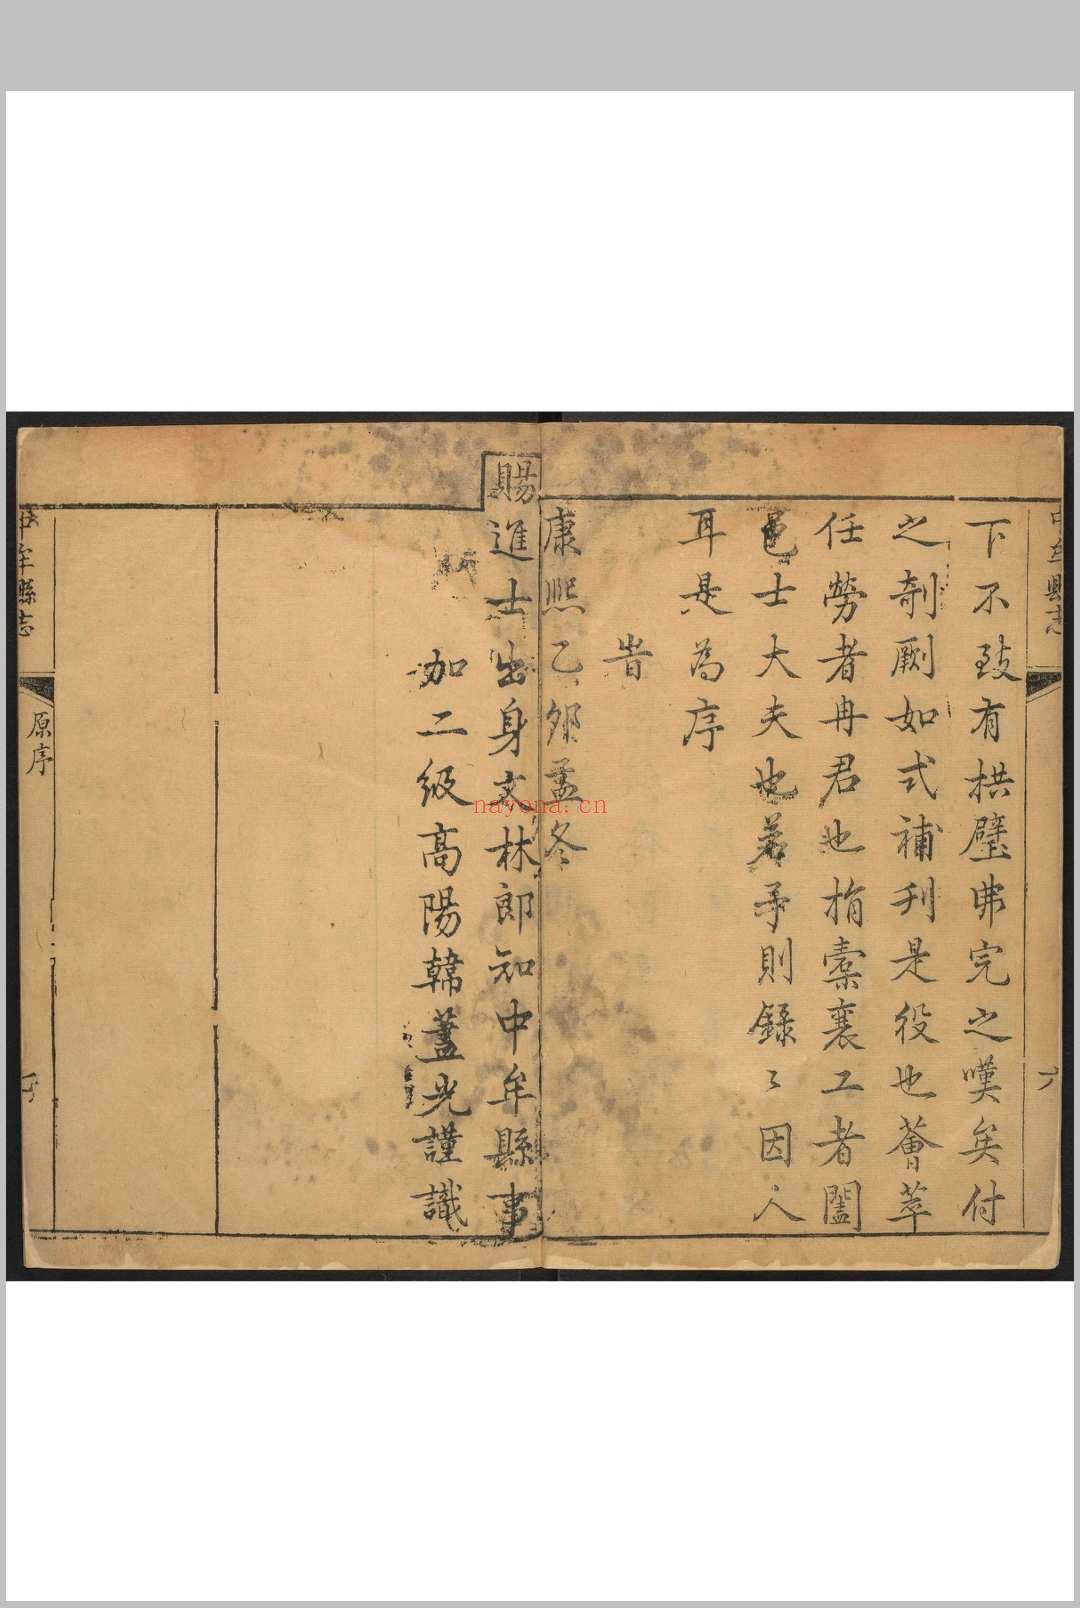 下不致有拱璧弗完之嘆矣付
之剞劂如式補刋是役也薈萃
任勞者冉君也捐橐襄工者闔
邑士大夫也若予則錄〻因人
耳是為序
旹
康熙乙夘孟冬
賜進士出身文林郎知中牟縣事
加二級高陽韓藎光謹識
中牟縣志
原序
nayona.cn